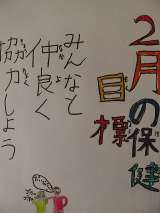 2月の保健
目標
みんなと
仲良く
協力しよう